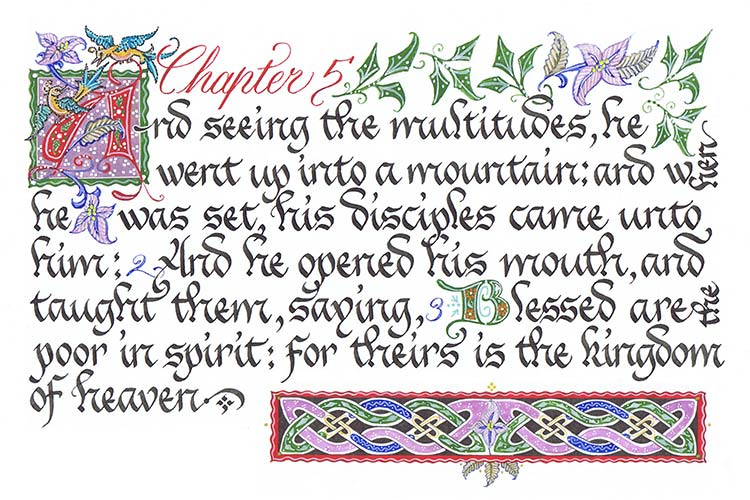 Chapter 5
And seeing the multitudes, he
went up into a mountain: and when
he was set, his disciples came unto
him: 2 And he opened his mouth, and
taught them, saying, 3 Blessed are the
poor in spirit: for theirs is the kingdom
of heaven